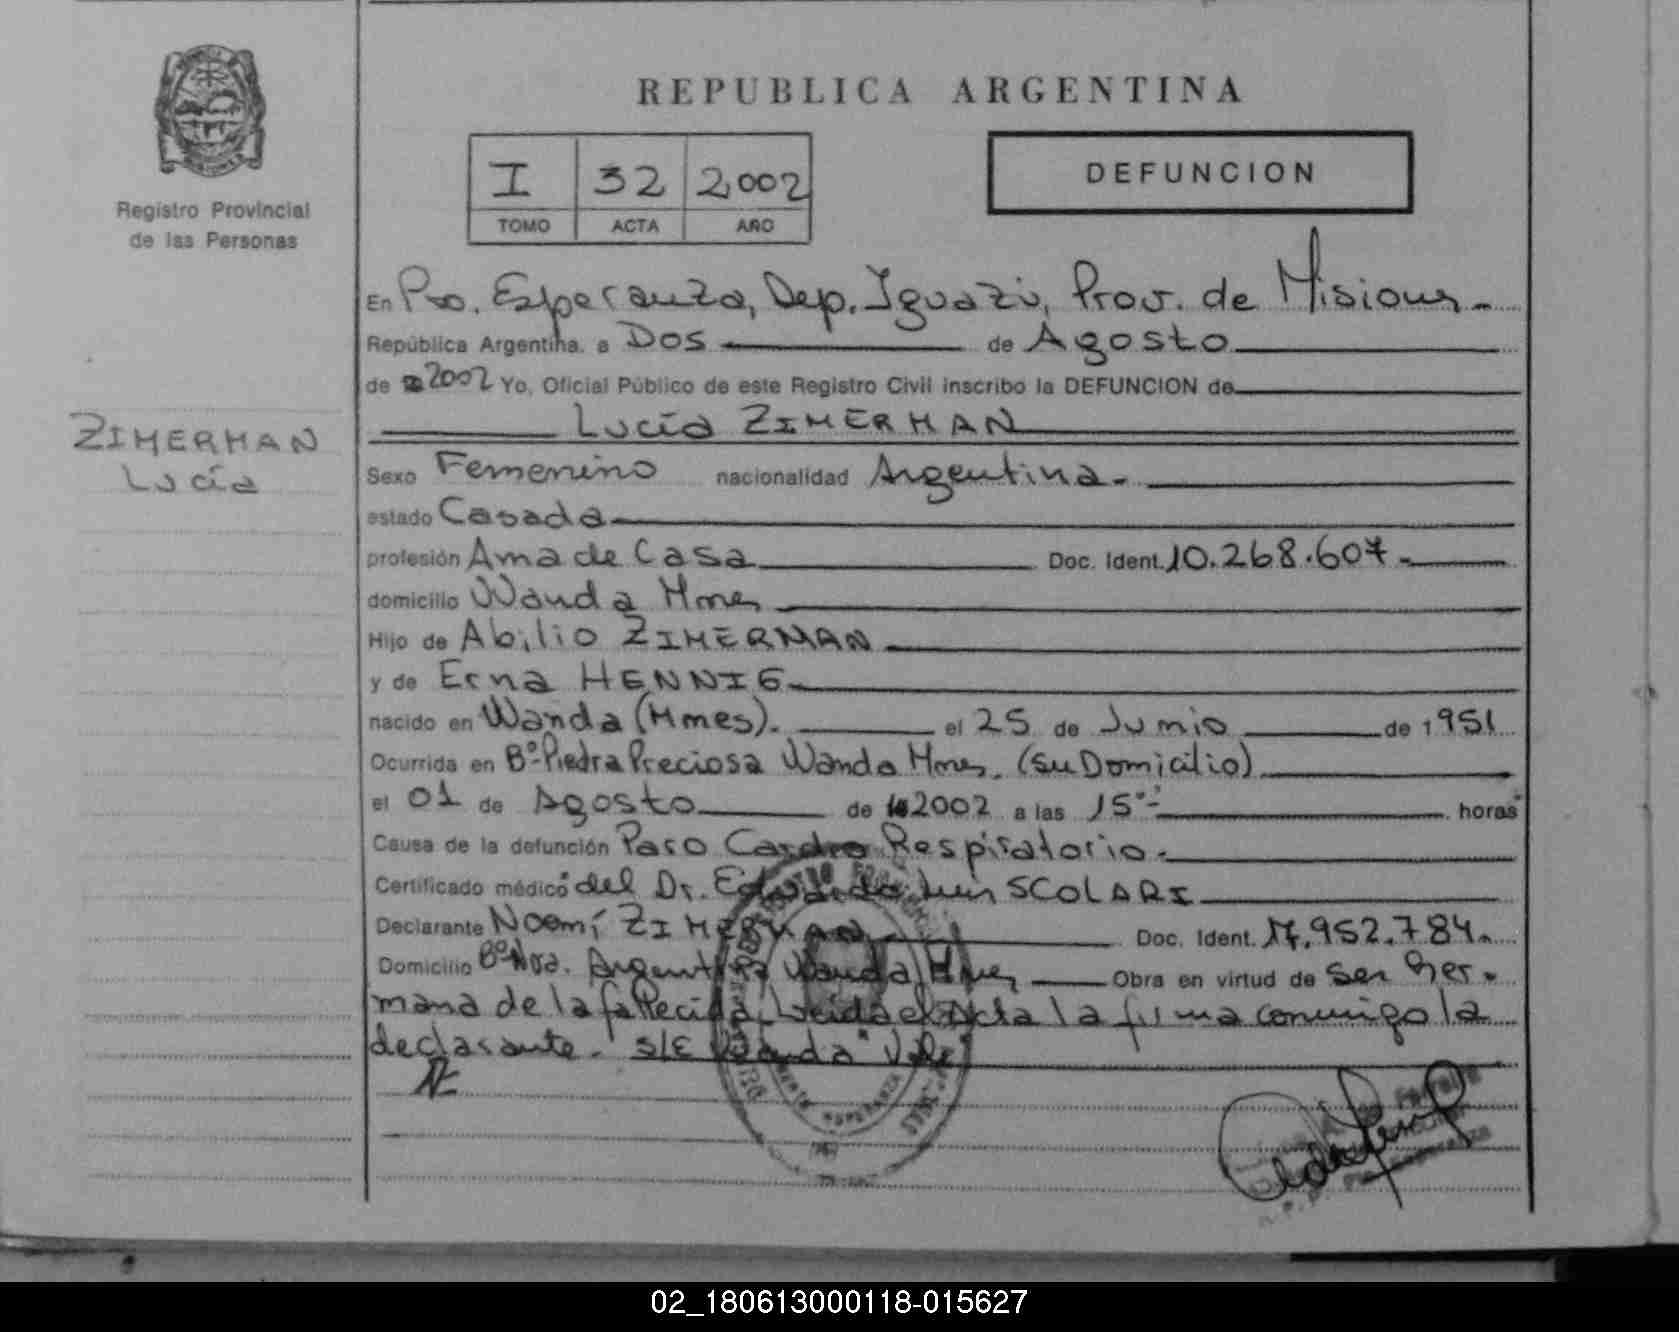 REPUBLICA ARGENTINA
I 32 2,002
TOMO ACTA AÑO
DEFUNCION
Registro Provincial
de las Personas
ZIMERMAN
Lucía
En Pto. Esperanza, Dep. Iguazú, Prov. de Misiones.
República Argentina, a Dos de Agosto
de 2002 Yo, Oficial Público de este Registro Civil inscribo la DEFUNCION de
Lucía ZIMERMAN
Sexo Femenino nacionalidad Argentina.
estado Casada
profesión Ama de Casa Doc. Ident. 10.268.607.
domicilio Wanda Mnes
Hijo de Abilio ZIMERMAN
y de Erna HENNIG
nacido en Wanda (Mnes). el 25 de Junio de 1951
Ocurrida en Bº Piedra Preciosa Wanda Mnes. (su Domicilio)
el 01 de Agosto de 2002 a las 15 horas
Causa de la defunción Paro Cardio Respiratorio.
Certificado médico del Dr. Eduardo Luis SCOLARI
Declarante Noemí ZIMERMAN Doc. Ident. 17.952.784.
Domicilio Bº Ntra. Argentina Wanda Mnes Obra en virtud de ser her-
mana de la fallecida, Leida el Acta la firma conmigo la
declarante. S/E "Wanda" Vale
02_180613000118-015627